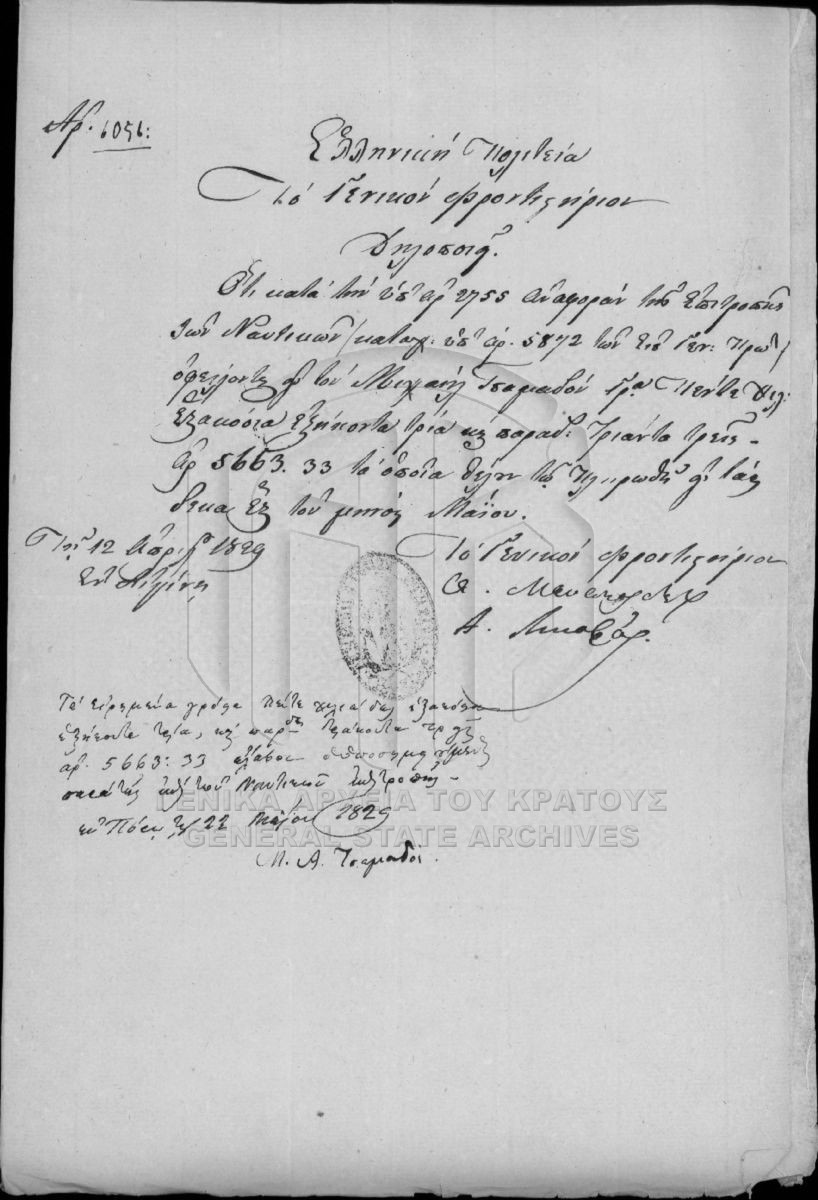 Αρ. 6056:
Ελληνική Πολιτεία
Τό Γενικόν Φροντιστήριον
Δηλοποιεῖ.
Ὅτι κατά τήν ὑπ' ἀρ. 2755 ἀναφοράν τῆς Ἐπιτροπῆς
τῶν Ναυτικῶν / καταχ: ὑπ' ἀρ. 5872 τῶν εἰς Γεν: Πρωτ /
ὀφείλονται εἰς τόν Μιχαήλ Τσαμαδόν Γρ. Πέντε Χιλ:
Ἑξακόσια ἑξήκοντα τρία κ παραδ: Τριάντα τρεῖς
ἀρ 5663.33 τά ὁποῖα θέλουν τῷ πληρωθῆ εἰς τάς
δεκαὲξ τοῦ μηνός Μαΐου.
Τῇ 12 Ἀπριλ 1829
Ἐν Αἰγίνῃ
Τό Γενικόν Φροντιστήριον
Α.
Τά εἰρημένα γρόσια πέντε χιλιάδας ἑξακόσια
ἑξήκοντα τρία, κ παρδες τριάκοντα τρεῖς
αρ. 5663:33 ἔλαβον
τοῦ Ναυτικοῦ ἐπιτροπῆς
ἐν Πόρῳ τῇ 22 Μαΐου 1829
Μ. Α. Τσαμαδός.
ΓΕΝΙΚΑ ΑΡΧΕΙΑ ΤΟΥ ΚΡΑΤΟΥΣ
GENERAL STATE ARCHIVES